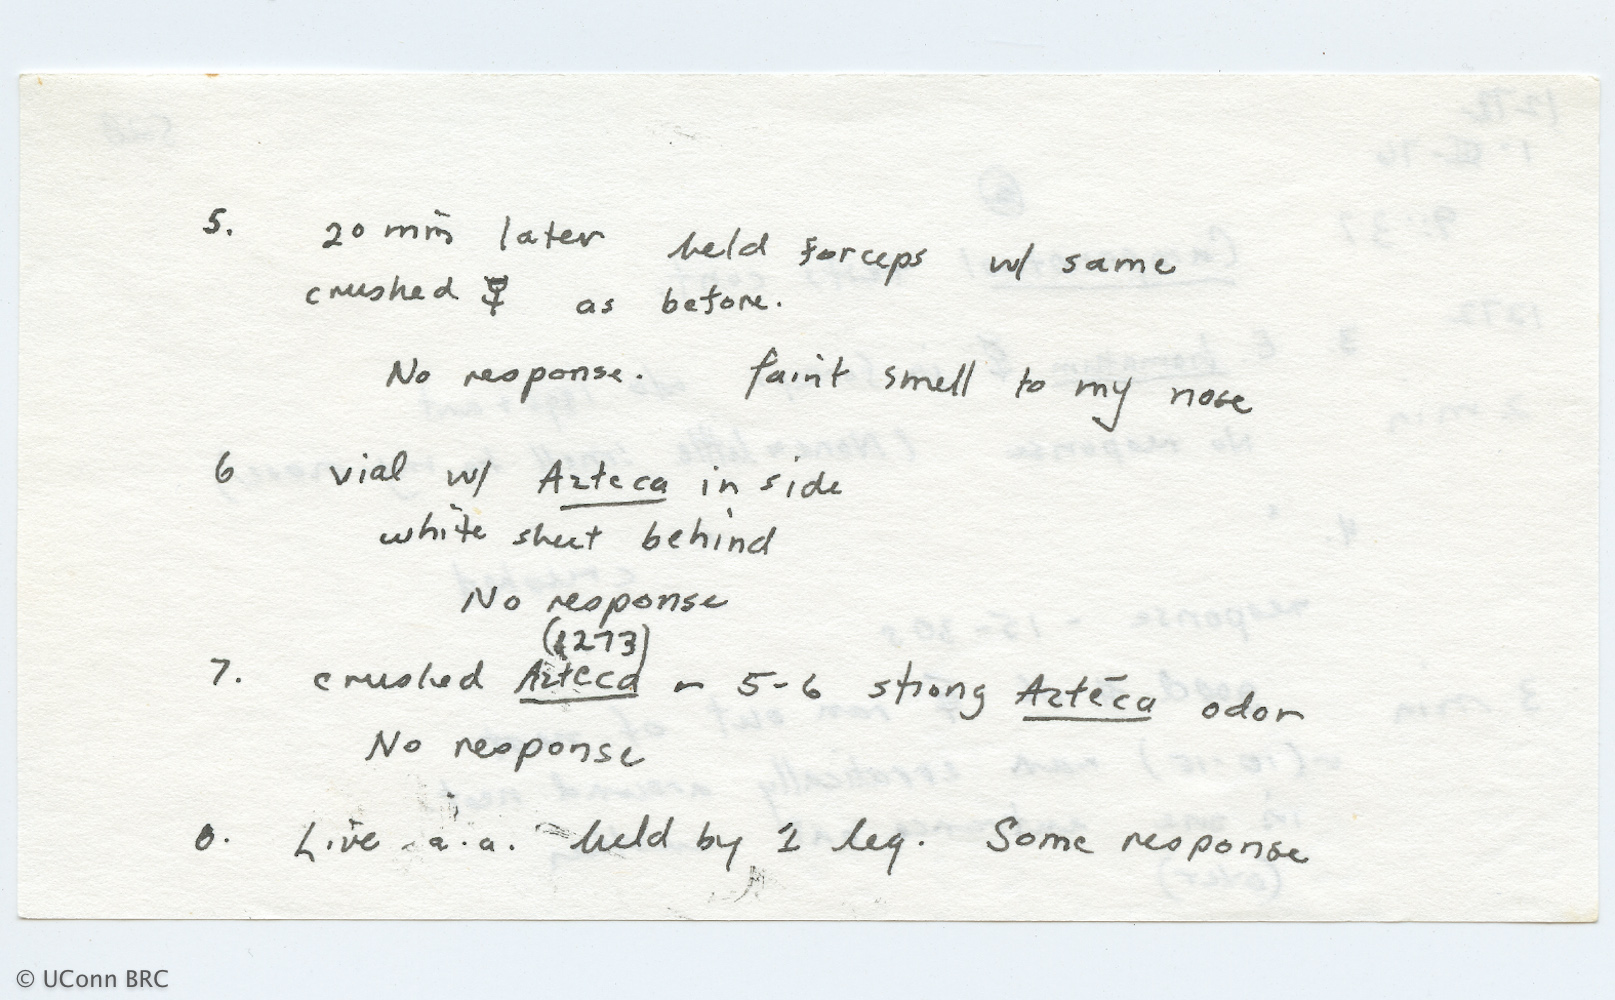 5. 20 min later held forceps w/ same
crushed ☿ as before.
No response. faint smell to my nose
6 vial w/ Azteca inside
white sheet behind
No response
(1273)
7. crushed Azteca - 5-6 strong Azteca odor
No response
8. Live a.a. held by 1 leg. Some response
© UConn BRC